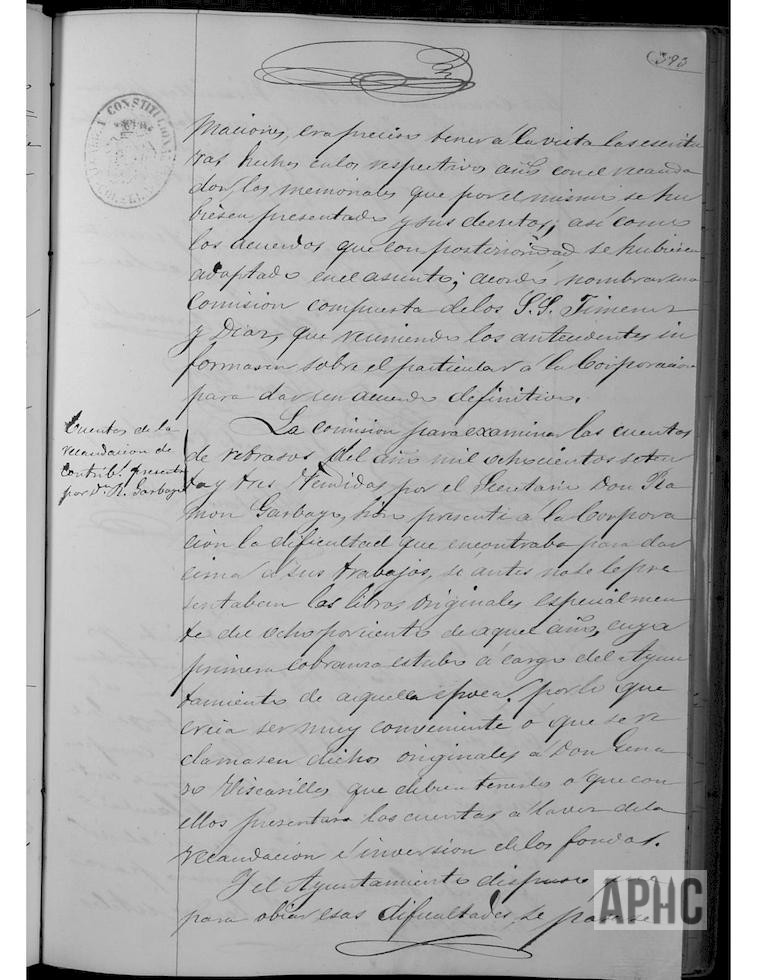 393
CONSTITUCIONAL
maciones, era preciso tener á la vista las escritu
ras hechas en los respectivos años con el recauda
dor, los memoriales que por el mismo se hu
biesen presentado y sus decretos; así como
los acuerdos que con posterioridad se hubiesen
adoptado en el asunto; acordó nombrar una
Comision compuesta de los S.S. Jimenez
y Diaz, que reuniendo los antecedentes in
formasen sobre el particular á la Corporacion
para dar un acuerdo definitivo.
Cuentas de la
recaudacion de
contrib.s presenta
por Dn. R. Garbayo
La comision para examinar las cuentas
de retrasos del año mil ochocientos seten
ta y tres rendidas por el Secretario Don Ra
mon Garbayo, hizo presente á la Corpora
cion la dificultad que encontraba para dar
cima á sus trabajos, si antes no se le pre
sentaban los libros originales especialmen
te del ocho por ciento de aquel año, cuya
primera cobranza estubo á cargo del Ayun
tamiento de aquella epoca, por lo que
creia ser muy conveniente ó que se re
clamasen dichos originales á Don Gena
ro Viscasillas que debia tenerlos ó que con
ellos presentara las cuentas al haver de la
recaudacion é inversion de los fondos.
Y el Ayuntamiento dispuso que
para obiar esas dificultades, se pasase
APHC